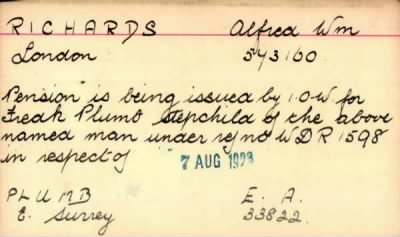 RICHARDS Alfred Wm
London 543160
Pension is being issued by I.O.W. for
Freak Plumb stepchild of the above
named man under ref no WDR 1598
in respect of 7 AUG 1923
PLUMB E. A.
E. Surrey 33822.